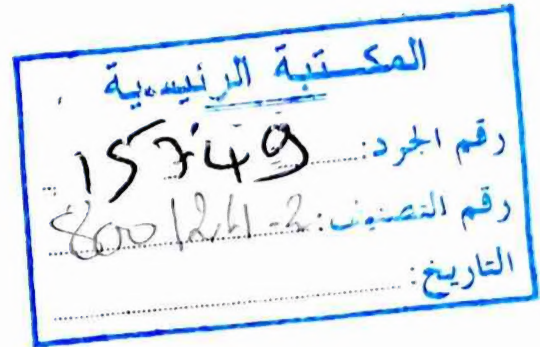 المكتبة الرئيسية
رقم الجرد: 15749
رقم التصنيف: 800/241-2
التاريخ: